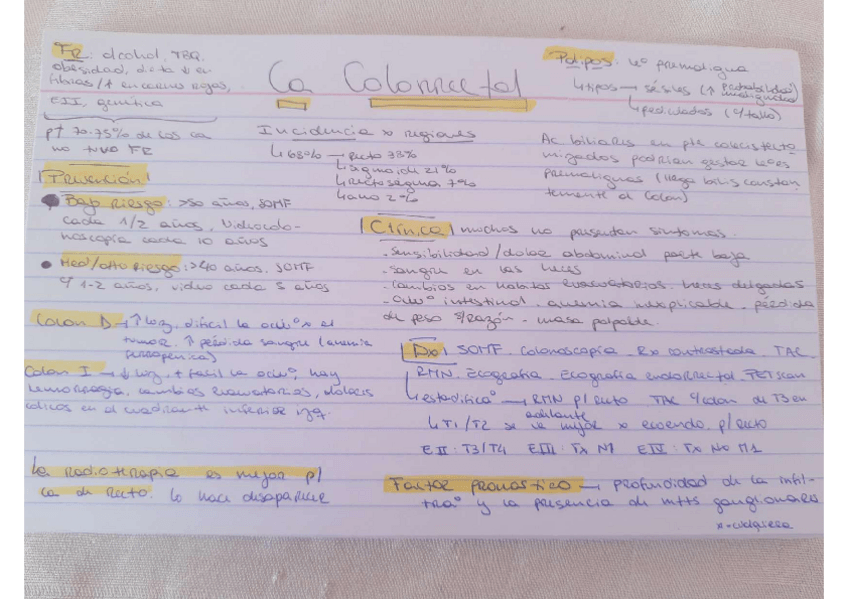 Ca Colorrectal
FR: alcohol, TBQ,
obesidad, dieta ↓ en
fibras / ↑ en carnes rojas,
EII, genética
p↑ 70-75% de los ca
no tuvo FR
Pólipos: le° premaligna
↳ tipos → sésiles (↑ probabilidad
malignidad)
↳ pediculados (c/ tallo)
Incidencia x regiones
↳ 68% → recto 33%
↳ sigmoide 21%
↳ rectosigma 7%
↳ ano 2%
Ac biliares en pte colecistecto
mizados podrían gestar les°es
premalignas (llega bilis constan
temente al colon)
Prevención
● Bajo riesgo: >50 años, SOMF
cada 1/2 años, videocolo-
noscopía cada 10 años
● Med/alto riesgo: >40 años. SOMF
c/ 1-2 años, video cada 5 años
Clínica muchos no presentan síntomas
- sensibilidad/dolor abdominal parte baja
- sangre en las heces
- cambios en hábitos evacuatorios. heces delgadas
- oclu° intestinal - anemia inexplicable - pérdida
de peso s/razón - masa palpable.
Colon D → ↑ luz, difícil la oclu° x el
tumor. ↑ pérdida sangre (anemia
ferropénica)
Colon I → ↓ luz, + facil la oclu°, hay
hemorragia, cambios evacuatorios, dolores
cólicos en el cuadrante inferior izq.
Dx SOMF. Colonoscopía. Rx contrastada. TAC
RMN. Ecografía. Ecografía endorrectal. PETscan
↳ estadifica° → RMN p/ recto. TAC p/ colon de T3 en
adelante
↳ T1/T2 se ve mejor x ecoendo. p/ recto
EII: T3/T4 EIII: Tx N1 EIV: Tx Nx M1
La radioterapia es mejor p/
ca de recto. lo hace desaparecer
Factor pronóstico → profundidad de la infil-
tra° y la presencia de mtts ganglionares